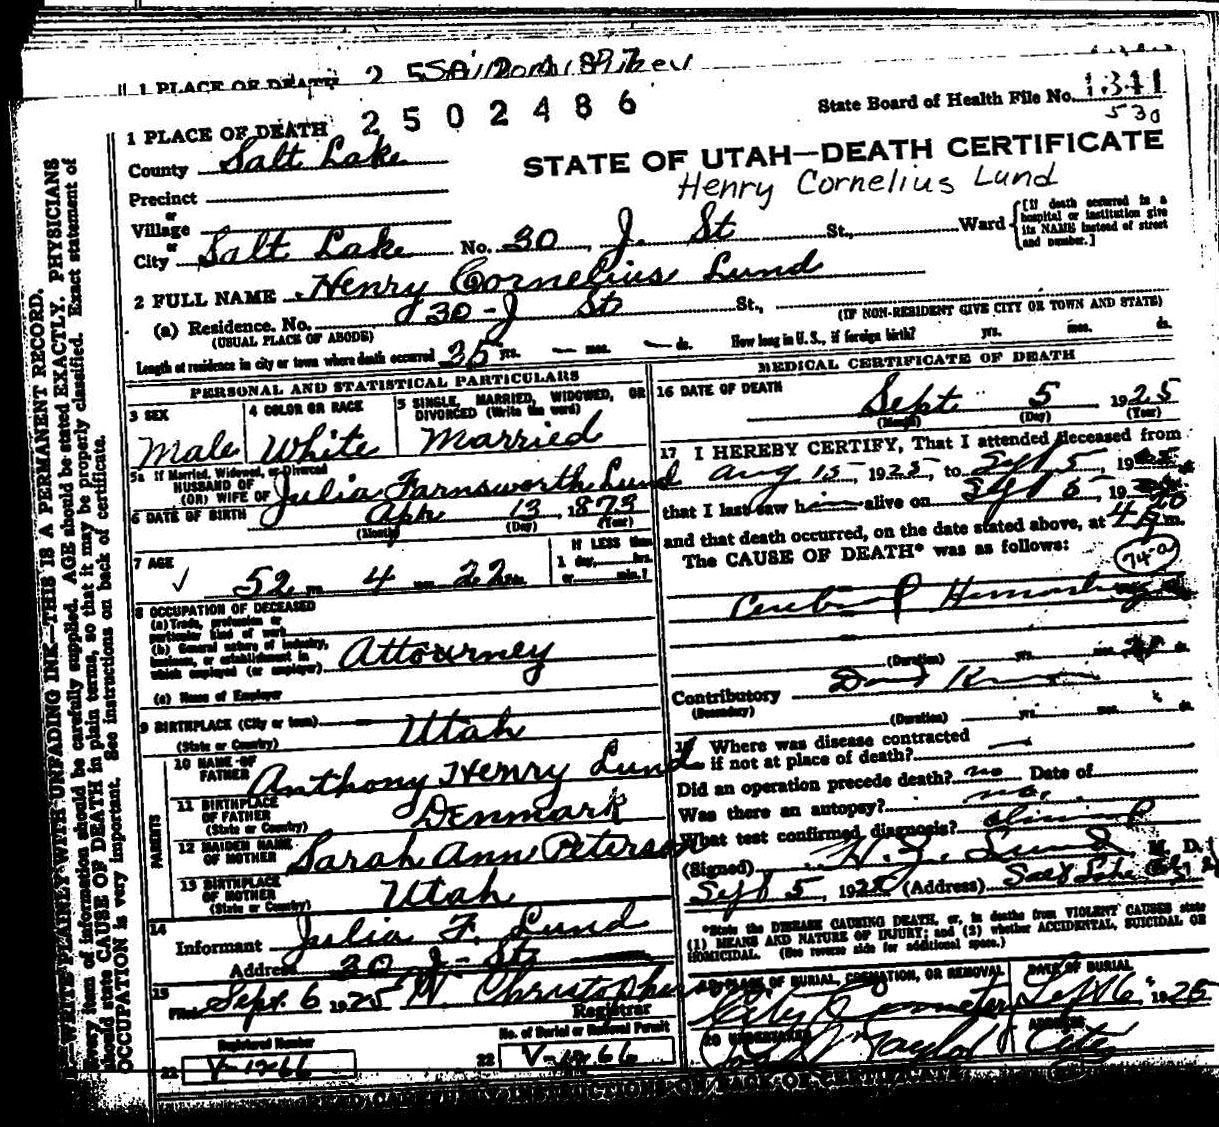 1 PLACE OF DEATH
1 PLACE OF DEATH 2502486
State Board of Health File No. 1344
530
County Salt Lake
STATE OF UTAH—DEATH CERTIFICATE
Henry Cornelius Lund
Precinct
or
Village
or
City Salt Lake No. 30 J. St St., Ward
[If death occurred in a hospital or institution give its NAME instead of street and number.]
2 FULL NAME Henry Cornelius Lund
(a) Residence. No. 30 - J St St.,
(USUAL PLACE OF ABODE)
(IF NON-RESIDENT GIVE CITY OR TOWN AND STATE)
Length of residence in city or town where death occurred 35 yrs. — mos. — ds. How long in U. S., if foreign birth? yrs. mos. ds.
PERSONAL AND STATISTICAL PARTICULARS
3 SEX
Male
4 COLOR OR RACE
White
5 SINGLE, MARRIED, WIDOWED, OR DIVORCED (Write the word)
Married
5a If Married, Widowed, or Divorced
HUSBAND OF
(OR) WIFE OF Julia Farnsworth Lund
6 DATE OF BIRTH Apr. 13, 1873
(Month) (Day) (Year)
7 AGE
52 yrs. 4 mos. 22 ds.
IF LESS than
1 day, hrs.
or min.?
8 OCCUPATION OF DECEASED
(a) Trade, profession or
particular kind of work
(b) General nature of industry,
business, or establishment in
which employed (or employer) Attourney
(c) Name of Employer
9 BIRTHPLACE (City or town)
(State or Country) Utah
PARENTS
10 NAME OF
FATHER Anthony Henry Lund
11 BIRTHPLACE
OF FATHER
(State or Country) Denmark
12 MAIDEN NAME
OF MOTHER Sarah Ann Peterson
13 BIRTHPLACE
OF MOTHER
(State or Country) Utah
14
Informant Julia F. Lund
Address 30 J - St
15
Filed Sept. 6 1925
Registrar
Registered Number
22 V-1266
No. of Burial or Removal Permit
22 V-1266
MEDICAL CERTIFICATE OF DEATH
16 DATE OF DEATH
Sept 5 1925
(Month) (Day) (Year)
17 I HEREBY CERTIFY, That I attended deceased from
Aug 15, 1925, to Sept 5, 19
that I last saw him alive on Sept 5, 19
and that death occurred, on the date stated above, at m.
The CAUSE OF DEATH* was as follows:
74-a
Cerebral Hemorrhage
(Duration) yrs. mos. ds.
Contributory
(Secondary)
(Duration) yrs. mos. ds.
18 Where was disease contracted
if not at place of death? —
Did an operation precede death? no Date of
Was there an autopsy? no.
What test confirmed diagnosis? clinical
(Signed) Lund M. D.
Sept 5, 1925 (Address) Salt Lake City
*State the DISEASE CAUSING DEATH, or, in deaths from VIOLENT CAUSES state
(1) MEANS AND NATURE OF INJURY; and (2) whether ACCIDENTAL, SUICIDAL OR
HOMICIDAL. (See reverse side for additional space.)
19 PLACE OF BURIAL, CREMATION, OR REMOVAL
City Cemetery
DATE OF BURIAL
Sept 6, 1925
20 UNDERTAKER
Taylor
ADDRESS
City
READ CAREFULLY INSTRUCTIONS ON BACK OF CERTIFICATE
WRITE PLAINLY WITH UNFADING INK—THIS IS A PERMANENT RECORD.
Every item of information should be carefully supplied. AGE should be stated EXACTLY. PHYSICIANS
should state CAUSE OF DEATH in plain terms, so that it may be properly classified. Exact statement of
OCCUPATION is very important. See instructions on back of certificate.